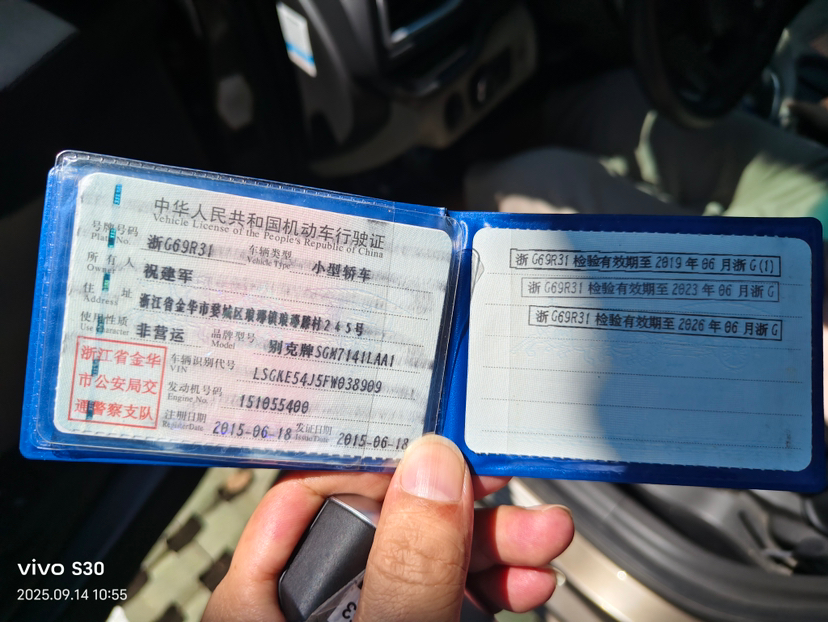 中华人民共和国机动车行驶证
Vehicle License of the People's Republic of China
号牌号码 浙G69R31 车辆类型 小型轿车
Plate No. Vehicle Type
所有人 祝建军
Owner
住址 浙江省金华市婺城区琅琊镇琅琊滕村245号
Address
使用性质 非营运 品牌型号 别克牌SGM7141LAA1
Use Character Model
浙江省金华
市公安局交
通警察支队
车辆识别代号 LSGKE54J5FW038909
VIN
发动机号码 151055400
Engine No.
注册日期 2015-06-18 发证日期 2015-06-18
Register Date Issue Date
浙G69R31 检验有效期至2019年06月浙G(1)
浙G69R31 检验有效期至2023年06月浙G
浙G69R31 检验有效期至2026年06月浙G
vivo S30
2025.09.14 10:55